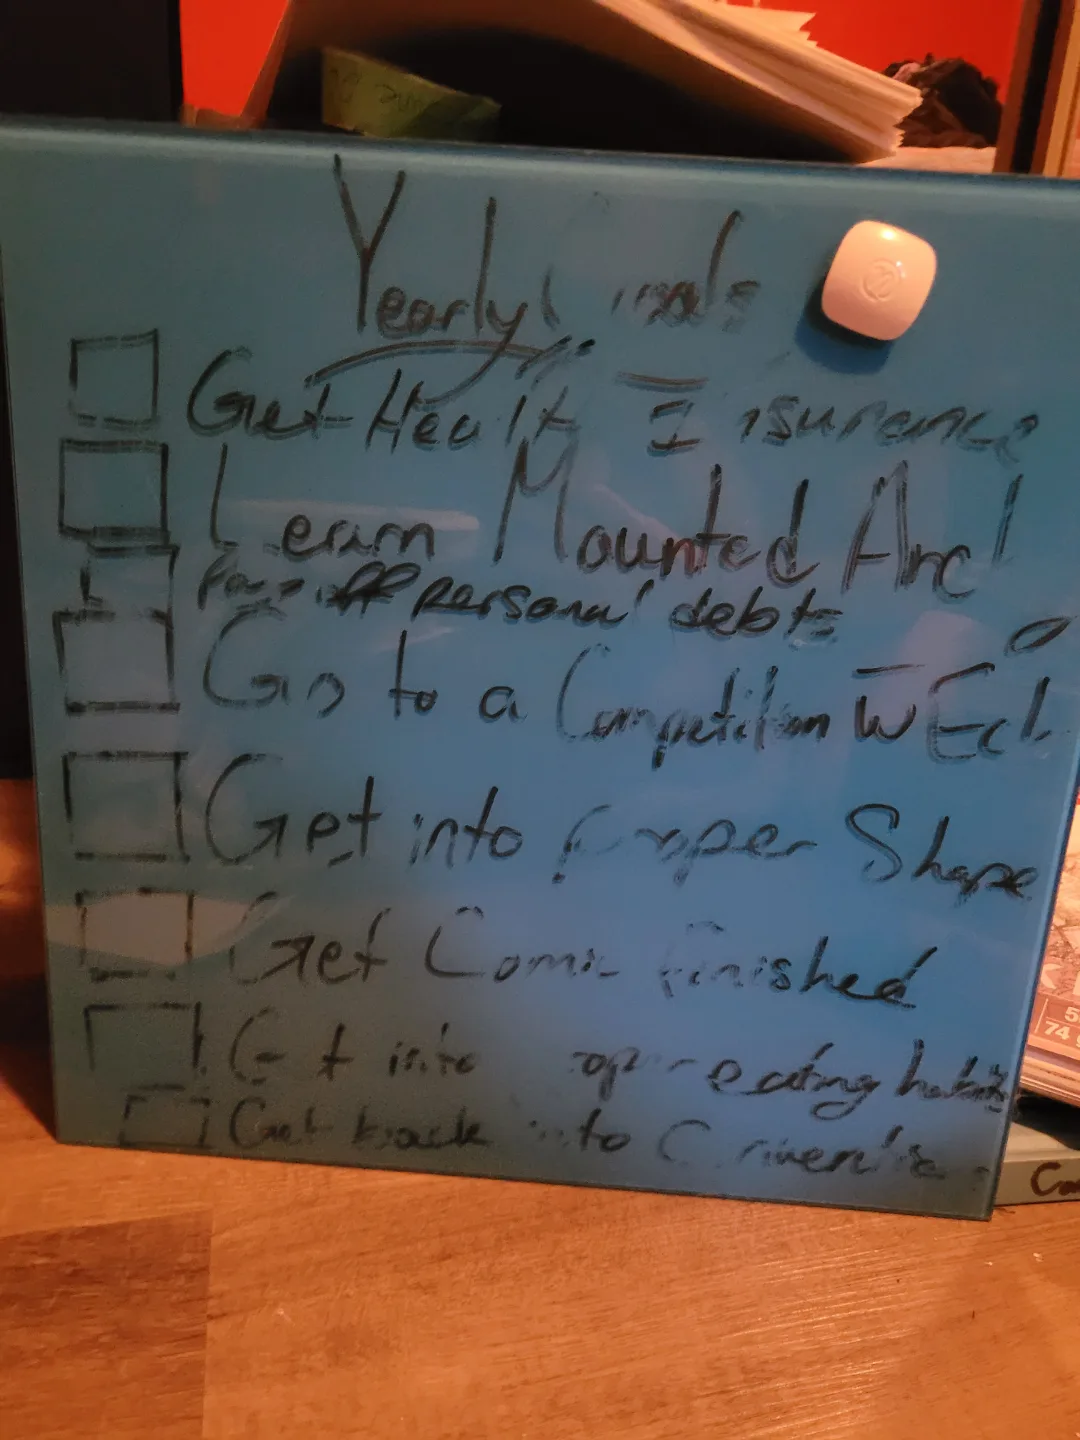 Yearly Goals
Get Health Insurance
Learn Mounted Arch
Pay off personal debts
Go to a Competition w Ech
Get into Proper Shape
Get Comic finished
Get into proper eating habits
Get back into
5
74